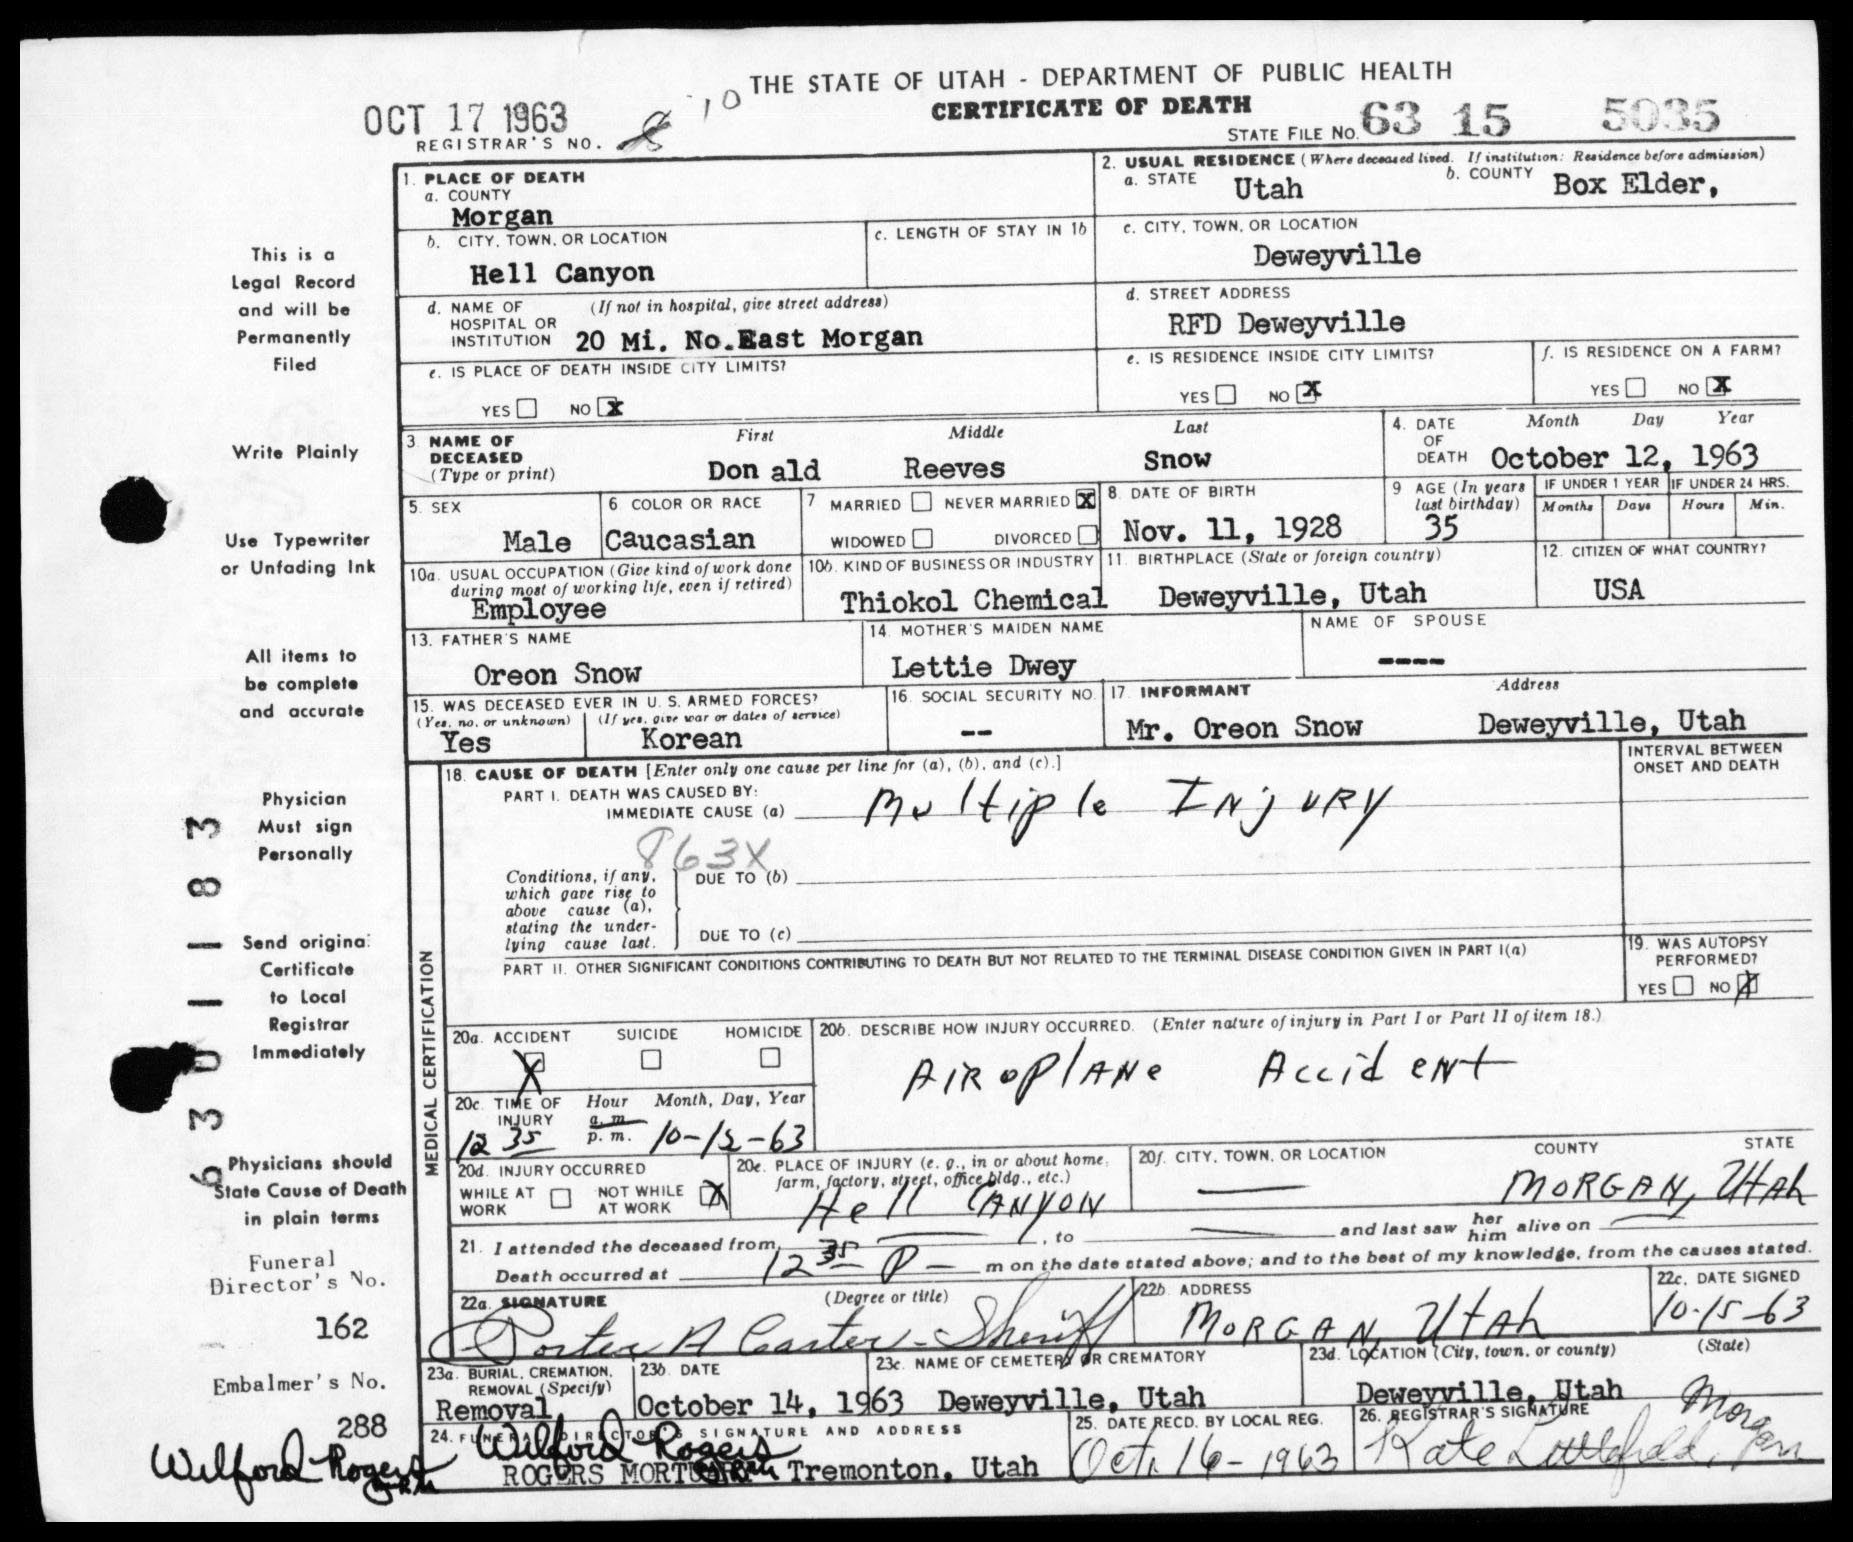 THE STATE OF UTAH - DEPARTMENT OF PUBLIC HEALTH
CERTIFICATE OF DEATH
OCT 17 1963
REGISTRAR'S NO.
10
STATE FILE NO. 63 15 5035
This is a
Legal Record
and will be
Permanently
Filed
Write Plainly
Use Typewriter
or Unfading Ink
All items to
be complete
and accurate
Physician
Must sign
Personally
Send original
Certificate
to Local
Registrar
Immediately
Physicians should
State Cause of Death
in plain terms
Funeral
Director's No.
162
Embalmer's No.
288
Wilford Rogers
1. PLACE OF DEATH
a. COUNTY
Morgan
b. CITY, TOWN, OR LOCATION
Hell Canyon
c. LENGTH OF STAY IN 1b
d. NAME OF HOSPITAL OR INSTITUTION (If not in hospital, give street address)
20 Mi. No.East Morgan
e. IS PLACE OF DEATH INSIDE CITY LIMITS?
YES NO X
2. USUAL RESIDENCE (Where deceased lived. If institution: Residence before admission)
a. STATE Utah b. COUNTY Box Elder,
c. CITY, TOWN, OR LOCATION
Deweyville
d. STREET ADDRESS
RFD Deweyville
e. IS RESIDENCE INSIDE CITY LIMITS?
YES NO X
f. IS RESIDENCE ON A FARM?
YES NO X
3. NAME OF DECEASED (Type or print)
First Middle Last
Don ald Reeves Snow
4. DATE OF DEATH Month Day Year
October 12, 1963
5. SEX
Male
6 COLOR OR RACE
Caucasian
7 MARRIED NEVER MARRIED X
WIDOWED DIVORCED
8. DATE OF BIRTH
Nov. 11, 1928
9 AGE (In years last birthday)
35
IF UNDER 1 YEAR IF UNDER 24 HRS.
Months Days Hours Min.
10a. USUAL OCCUPATION (Give kind of work done during most of working life, even if retired)
Employee
10b. KIND OF BUSINESS OR INDUSTRY
Thiokol Chemical
11. BIRTHPLACE (State or foreign country)
Deweyville, Utah
12. CITIZEN OF WHAT COUNTRY?
USA
13. FATHER'S NAME
Oreon Snow
14. MOTHER'S MAIDEN NAME
Lettie Dwey
NAME OF SPOUSE
----
15. WAS DECEASED EVER IN U. S. ARMED FORCES?
(Yes, no, or unknown) (If yes, give war or dates of service)
Yes Korean
16. SOCIAL SECURITY NO.
--
17. INFORMANT Address
Mr. Oreon Snow Deweyville, Utah
MEDICAL CERTIFICATION
18. CAUSE OF DEATH [Enter only one cause per line for (a), (b), and (c).]
INTERVAL BETWEEN ONSET AND DEATH
PART I. DEATH WAS CAUSED BY:
IMMEDIATE CAUSE (a) Multiple INjURY
863X
Conditions, if any, which gave rise to above cause (a), stating the underlying cause last.
DUE TO (b)
DUE TO (c)
PART II. OTHER SIGNIFICANT CONDITIONS CONTRIBUTING TO DEATH BUT NOT RELATED TO THE TERMINAL DISEASE CONDITION GIVEN IN PART I(a)
19. WAS AUTOPSY PERFORMED?
YES NO X
20a. ACCIDENT SUICIDE HOMICIDE
X
20b. DESCRIBE HOW INJURY OCCURRED. (Enter nature of injury in Part I or Part II of item 18.)
AIRoPlANe Accident
20c. TIME OF INJURY Hour Month, Day, Year
a. m.
12 35 p. m. 10-12-63
20d. INJURY OCCURRED
WHILE AT WORK NOT WHILE AT WORK X
20e. PLACE OF INJURY (e. g., in or about home, farm, factory, street, office bldg., etc.)
Hell CANYON
20f. CITY, TOWN, OR LOCATION COUNTY STATE
MORGAN, UtAh
21. I attended the deceased from , to and last saw her him alive on
Death occurred at 12 35 P m on the date stated above; and to the best of my knowledge, from the causes stated.
22a. SIGNATURE (Degree or title)
Porter A Carter - Sheriff
22b. ADDRESS
MORGAN, UtAh
22c. DATE SIGNED
10-15-63
23a. BURIAL, CREMATION, REMOVAL (Specify)
Removal
23b. DATE
October 14, 1963
23c. NAME OF CEMETERY OR CREMATORY
Deweyville, Utah
23d. LOCATION (City, town, or county) (State)
Deweyville, Utah
24. FUNERAL DIRECTOR'S SIGNATURE AND ADDRESS
Wilford Rogers
ROGERS MORTUARY Tremonton, Utah
25. DATE RECD. BY LOCAL REG.
Oct. 16-1963
26. REGISTRAR'S SIGNATURE
Kate Littlefield, Morgan
6 3 0 1 1 8 3